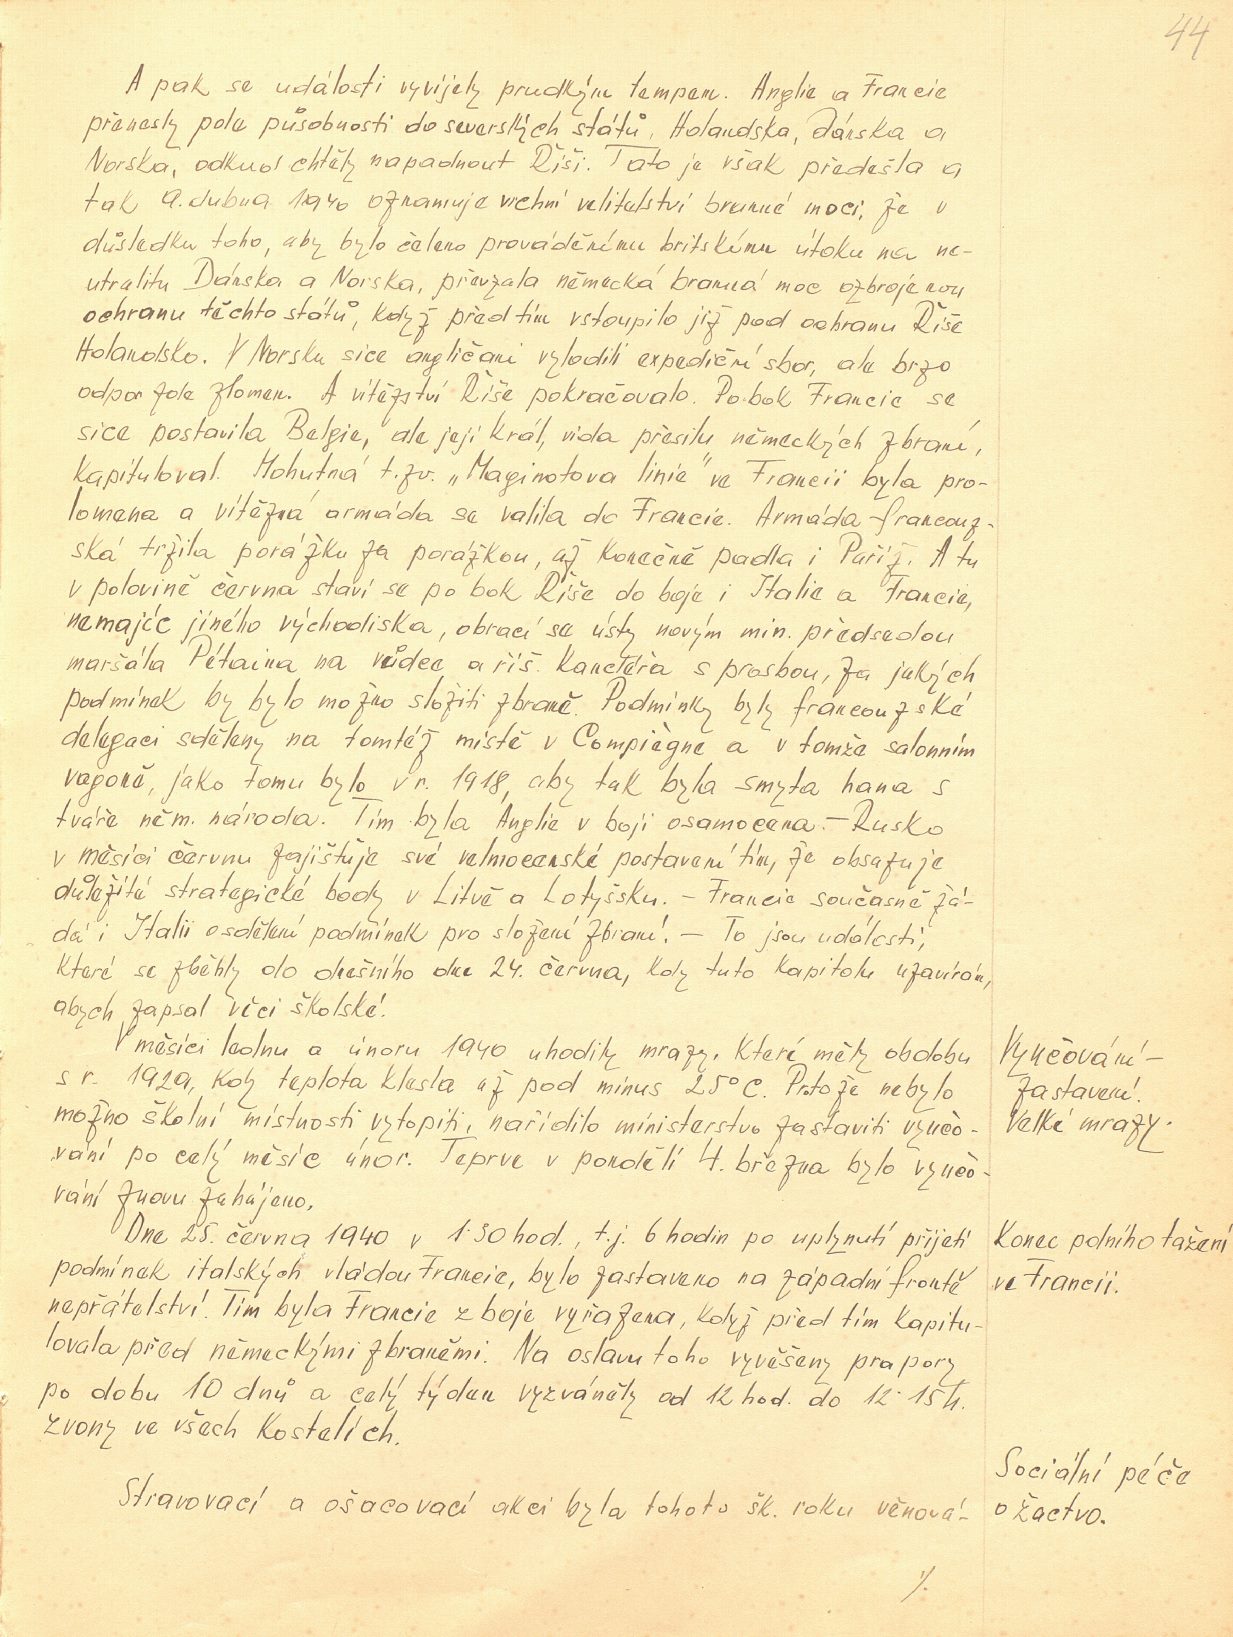 44
A pak se události vyvíjely prudkým tempem. Anglie a Francie
přenesly pole působnosti do severských států, Holandska, Dánska a
Norska, odkud chtěly napadnout Říši. Tato je však předešla a
tak 9. dubna 1940 oznamuje vrchní velitelství branné moci, že v
důsledku toho, aby bylo čeleno prováděnému britskému útoku na ne-
utralitu Dánska a Norska, převzala německá branná moc ozbrojenou
ochranu těchto států, když před tím vstoupilo již pod ochranu Říše
Holandsko. V Norsku sice angličani vylodili expediční sbor, ale brzo
odpor zde zlomen. A vítězství Říše pokračovalo. Po bok Francie se
sice postavila Belgie, ale její král, vida přesilu německých zbraní,
kapituloval. Mohutná t.zv. „Maginotova linie" ve Francii byla pro-
lomena a vítězná armáda se valila do Francie. Armáda francouz-
ská tržila porážku za porážkou, až konečně padla i Paříž. A tu
v polovině června staví se po bok Říše do boje i Italie a Francie,
nemajíc jiného východiska, obrací se ústy novým min. předsedou
maršála Pétaina na vůdce a říš. kancléře s prosbou, za jakých
podmínek by bylo možno složiti zbraně. Podmínky byly francouzské
delegaci sděleny na tomtéž místě v Compiègne a v tomže salonním
vagoně, jako tomu bylo v r. 1918, aby tak byla smyta hana s
tváře něm. národa. Tím byla Anglie v boji osamocena. – Rusko
v měsíci červnu zajišťuje své velmocenské postavení tím, že obsazuje
důležité strategické body v Litvě a Lotyšsku. – Francie současně žá-
dá i Italii o sdělení podmínek pro složení zbraní. – To jsou události,
které se zběhly do dnešního dne 24. června, kdy tuto kapitolu uzavírám,
abych zapsal věci školské.
V měsíci lednu a únoru 1940 uhodily mrazy, které měly obdobu
s r. 1929, kdy teplota klesla až pod minus 25° C. Protože nebylo
možno školní místnosti vytopiti, nařídilo ministerstvo zastaviti vyučo-
vání po celý měsíc únor. Teprve v pondělí 4. března bylo vyučo-
vání znovu zahájeno.
Vyučování –
zastavení.
Velké mrazy.
Dne 25. června 1940 v 1·30 hod., t.j. 6 hodin po uplynutí přijetí
podmínek italských vládou Francie, bylo zastaveno na západní frontě
nepřátelství. Tím byla Francie z boje vyřazena, když před tím kapitu-
lovala před německými zbraněmi. Na oslavu toho vyvěšeny prapory
po dobu 10 dnů a celý týden vyzváněly od 12 hod. do 12·15 h.
zvony ve všech kostelích.
Konec polního tažení
ve Francii.
Stravovací a ošacovací akci byla tohoto šk. roku věnová-
Sociální péče
o žactvo.
./.